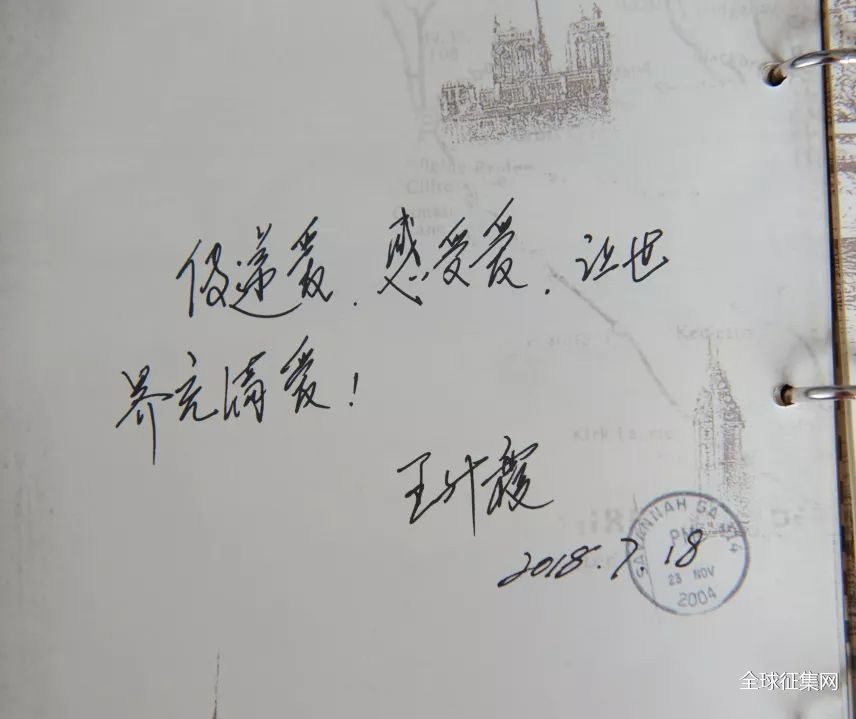 传递爱,感受爱,让世
界充满爱!
王升霞
2018.7.18
SAVANNAH GA 314
PM
23 NOV
2004
Clifto
Kirk
全球征集网